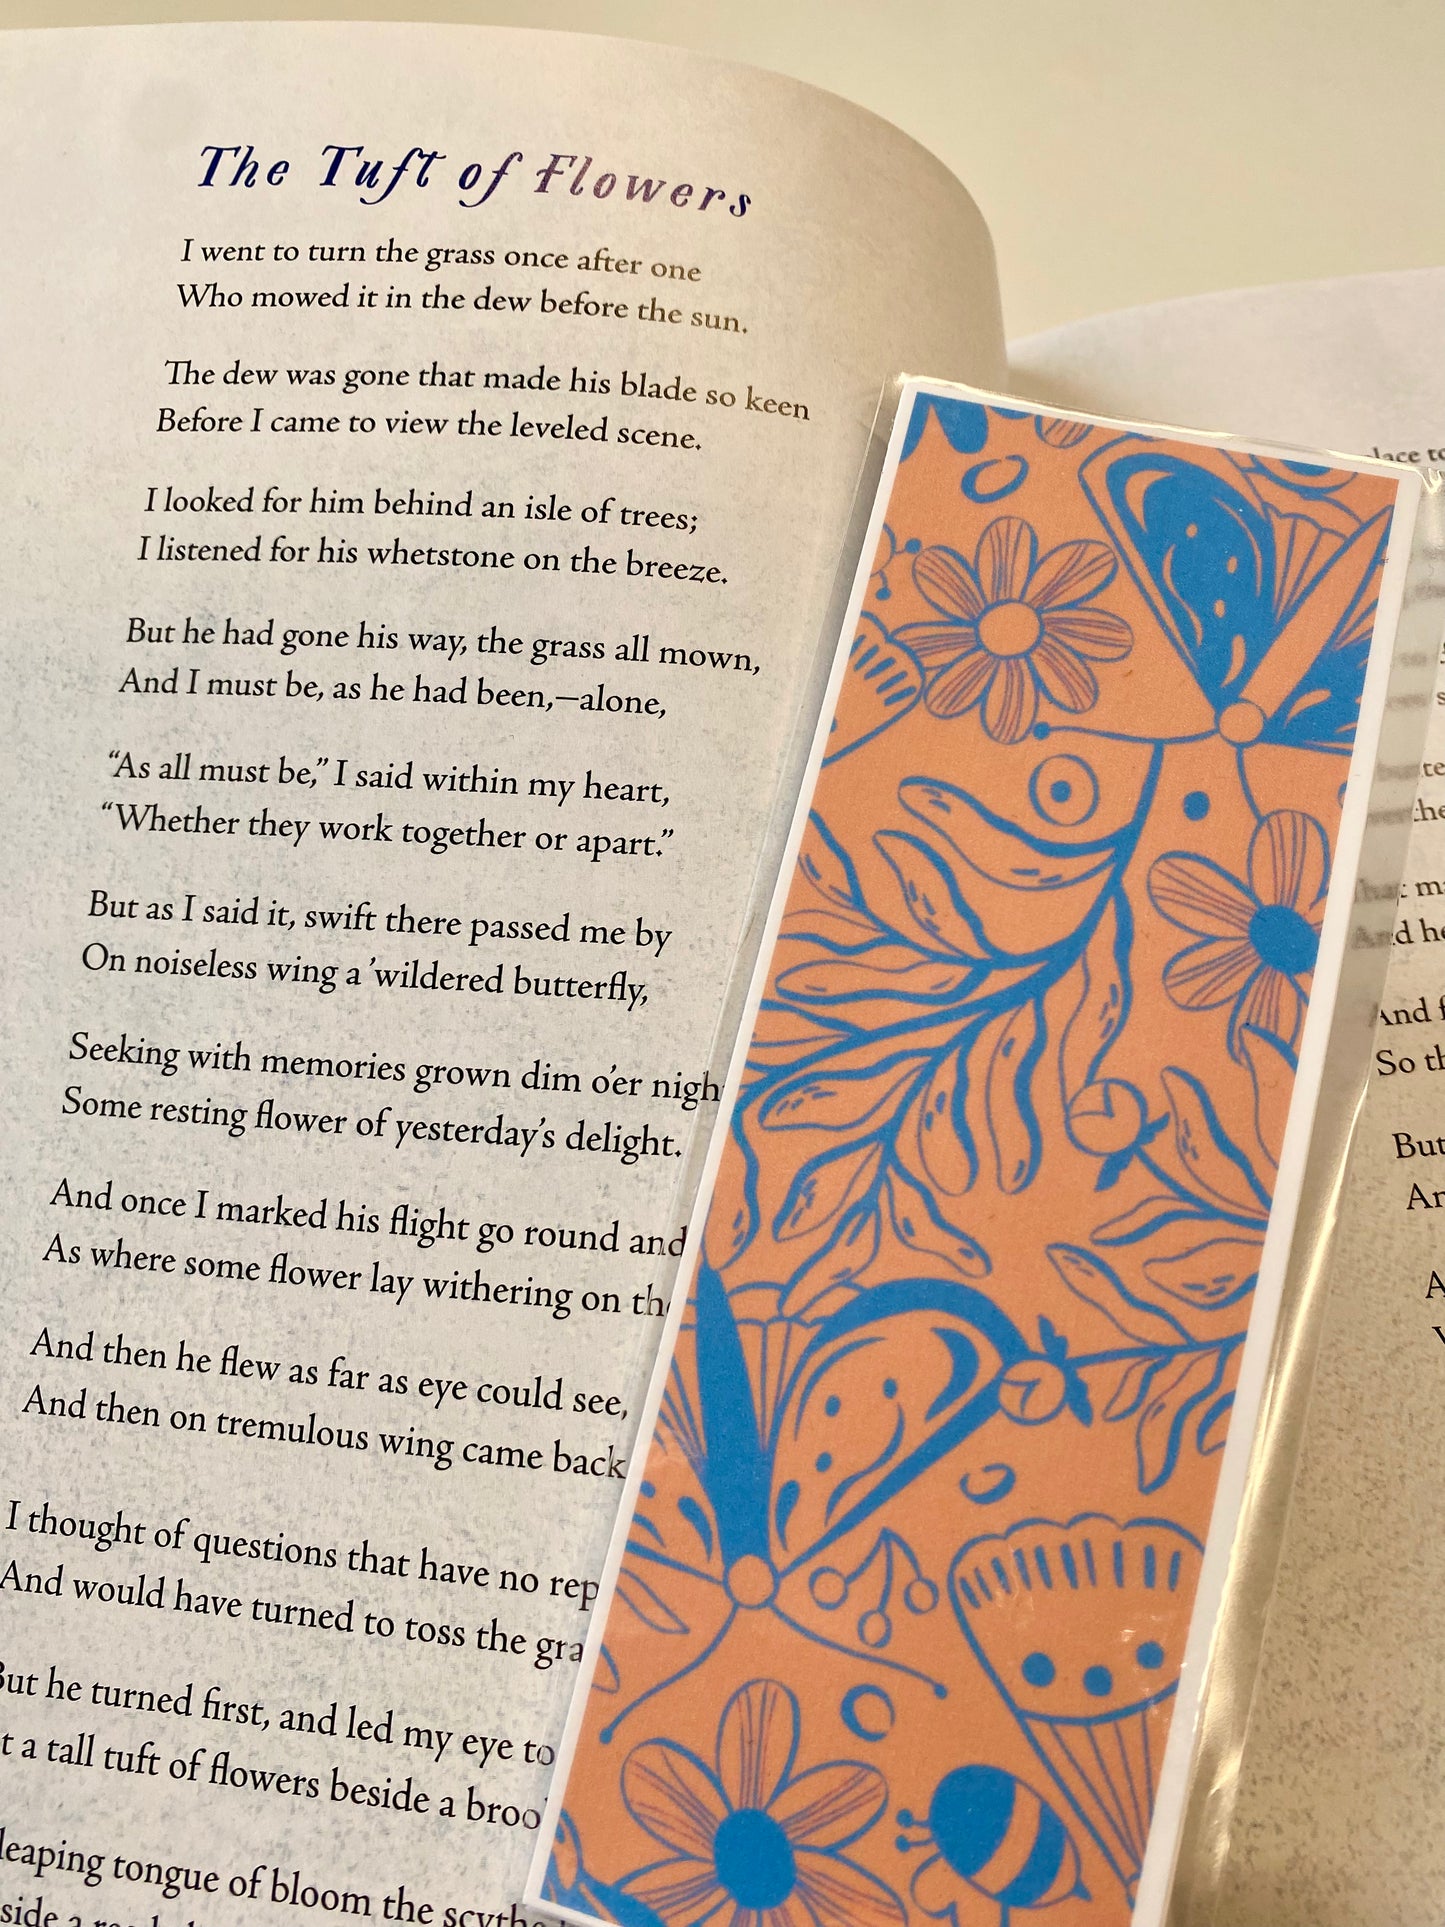 The Tuft of Flowers
I went to turn the grass once after one
Who mowed it in the dew before the sun.
The dew was gone that made his blade so keen
Before I came to view the leveled scene.
I looked for him behind an isle of trees;
I listened for his whetstone on the breeze.
But he had gone his way, the grass all mown,
And I must be, as he had been,—alone,
“As all must be,” I said within my heart,
“Whether they work together or apart.”
But as I said it, swift there passed me by
On noiseless wing a ’wildered butterfly,
Seeking with memories grown dim o’er
Some resting flower of yesterday’s delight.
And once I marked his flight go round and
As where some flower lay withering on
And then he flew as far as eye could see,
And then on tremulous wing came back
I thought of questions that have no
And would have turned to toss the
But he turned first, and led my eye to
a tall tuft of flowers beside a
leaping tongue of bloom the
to
And
So
But